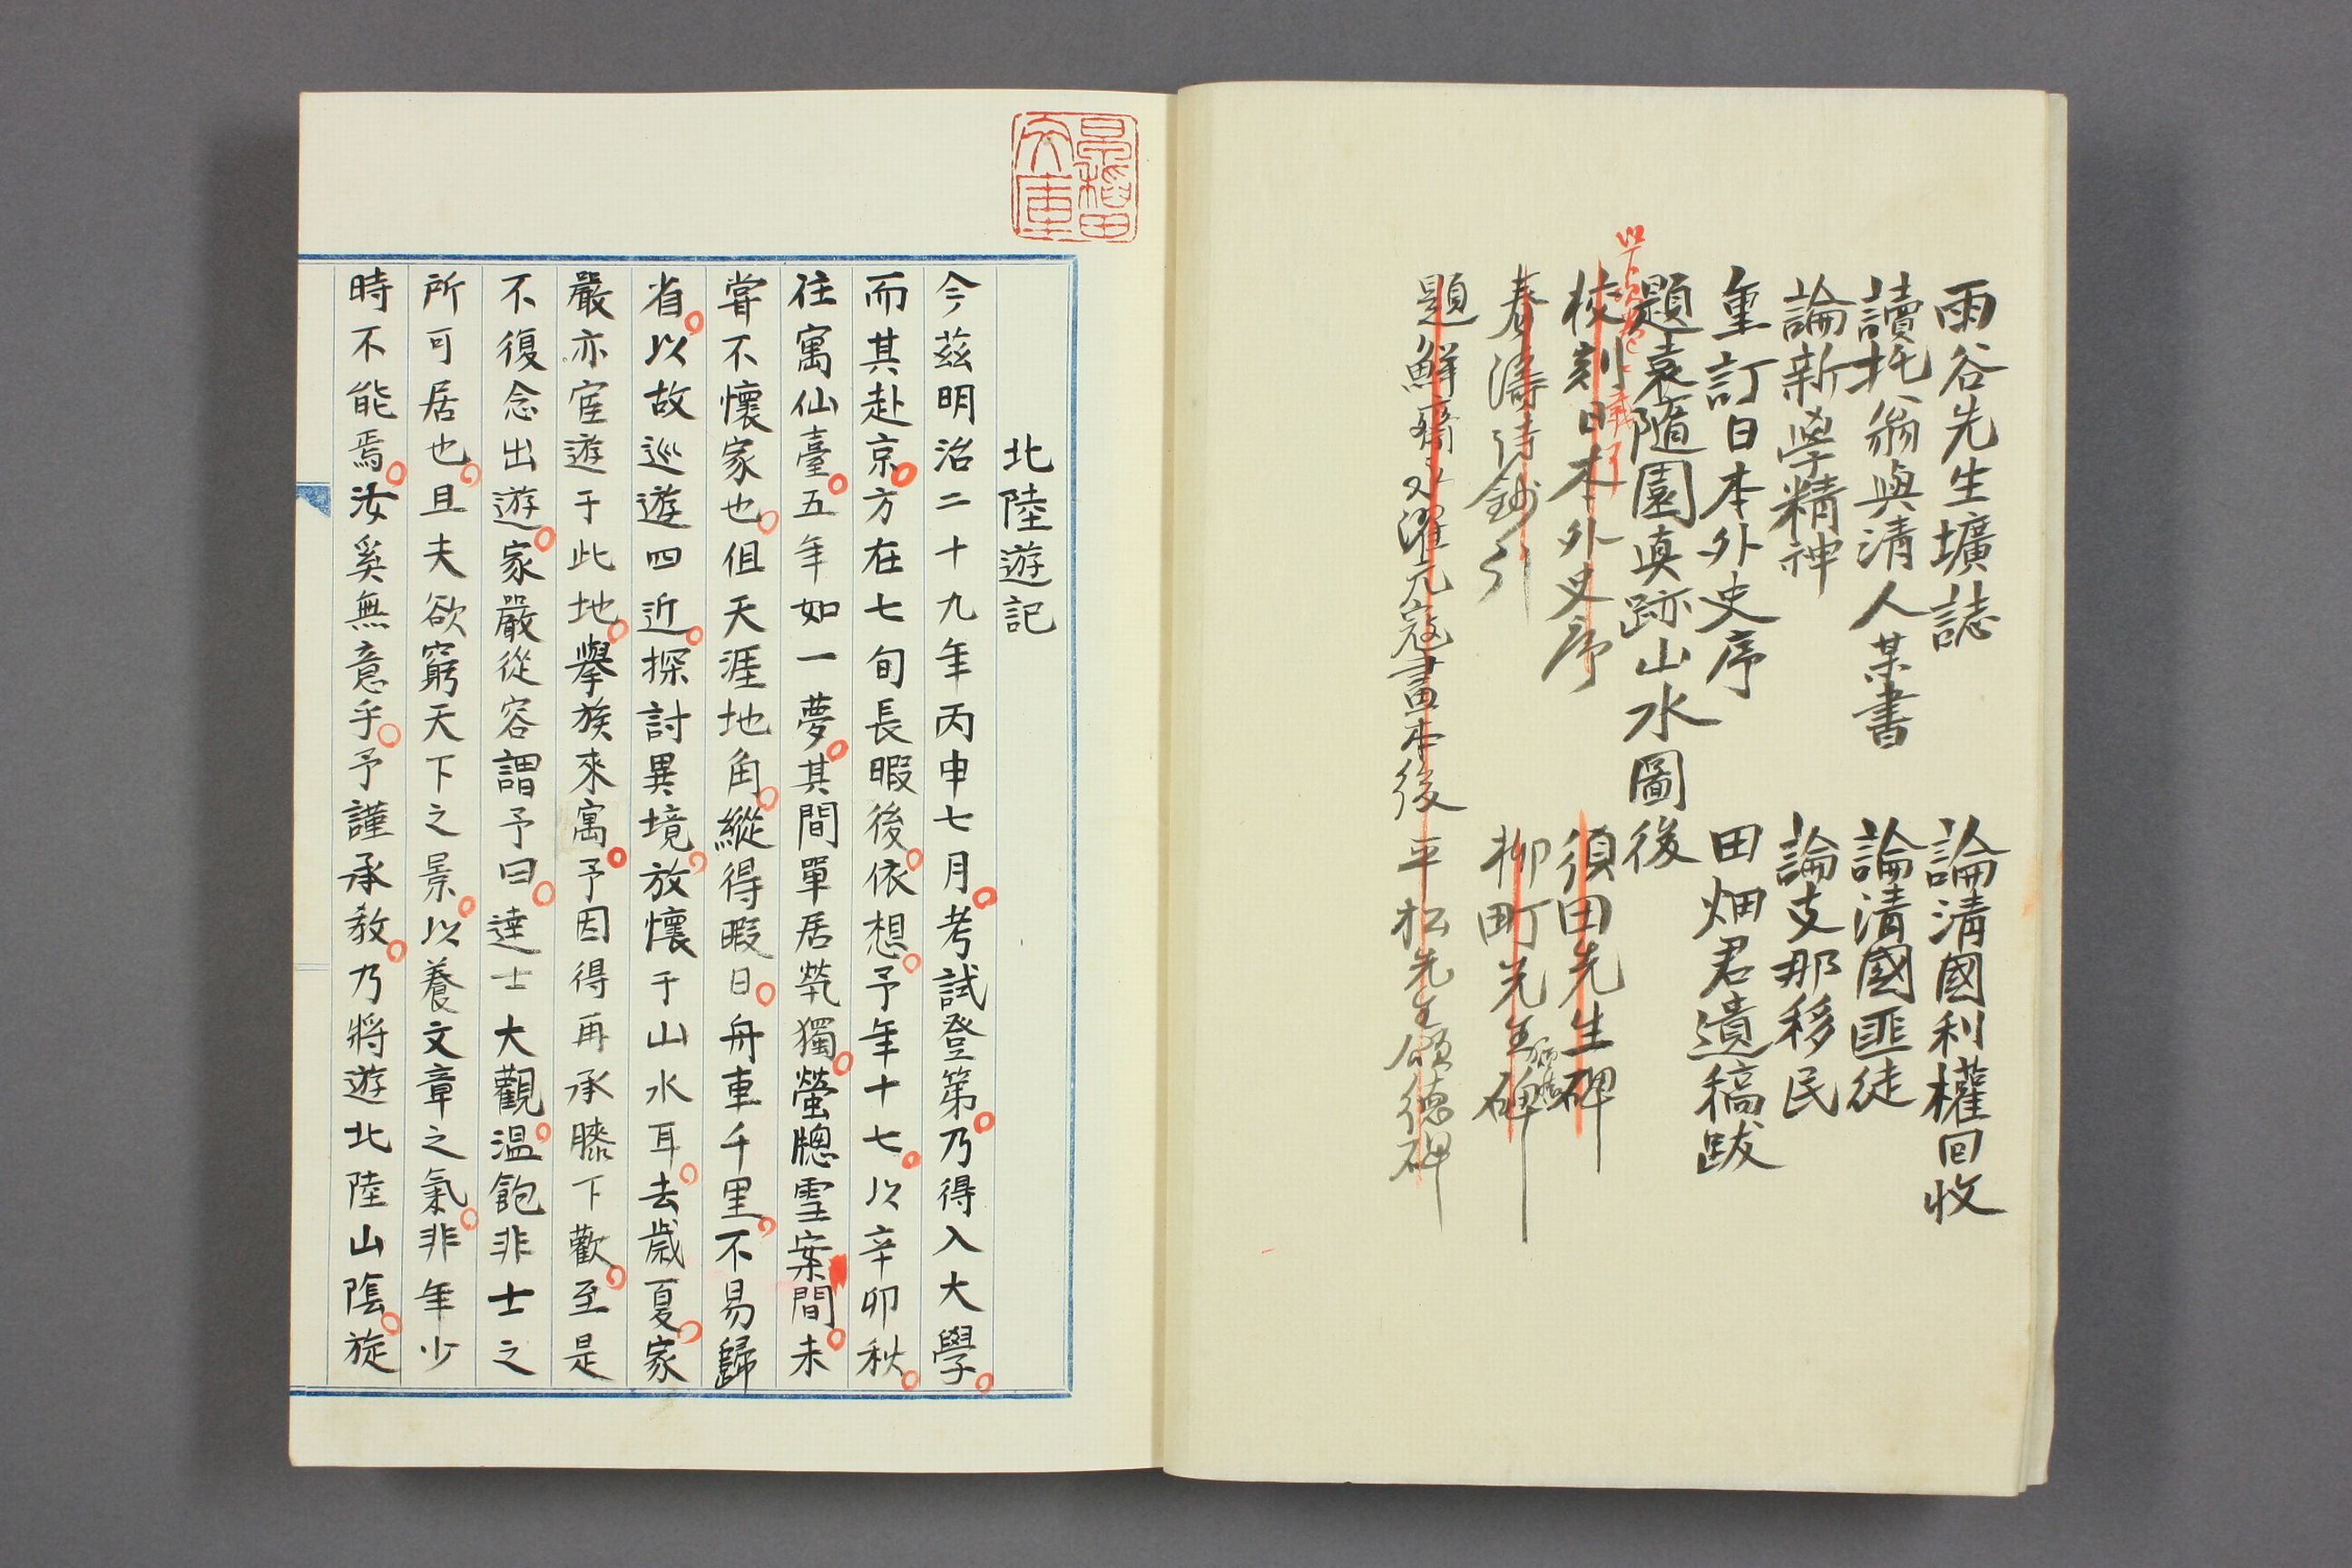 雨谷先生壙誌
讀托翁與清人某書
論新學精神
重訂日本外史序
題袁隨園真跡山水圖後
校刻日本外史序
春濤詩鈔引
題鮮齋永濯元寇畫本後
論清國利權回收
論清國匪徒
論支那移民
田畑君遺稿跋
須田先生碑
柳町先生碑
平松先生頌德碑
早稲田文庫
北陸遊記
今茲明治二十九年丙申七月考試登第乃得入大學
而其赴京方在七旬長暇後依想予年十七以辛卯秋
往寓仙臺五年如一夢其間單居煢獨螢牕雪案間未
嘗不懷家也但天涯地角縱得暇日舟車千里不易歸
省以故巡遊四近探討異境放懷于山水耳去歲夏家
嚴亦宦遊于此地擧族來寓予因得再承膝下歡至是
不復念出遊家嚴從容謂予曰達士大觀温飽非士之
所可居也且夫欲窮天下之景以養文章之氣非年少
時不能焉汝奚無意乎予謹承教乃將遊北陸山陰旋